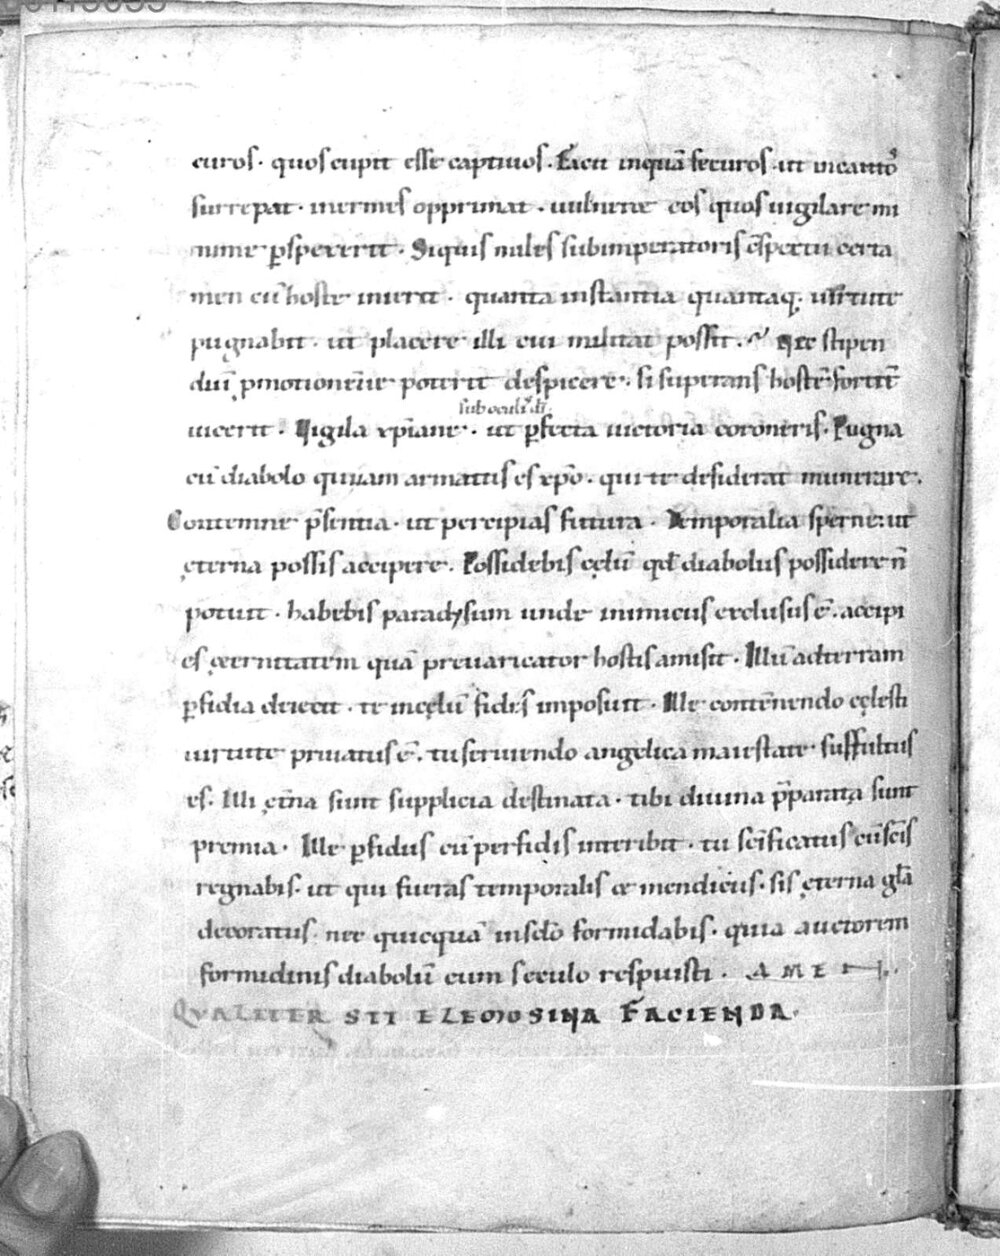 curos. quos cupit esse captiuos. Facit inquā securos. ut incautos
surrepat. inermes opprimat. uulneret eos quos uigilare mi
nime p̱spexerit. Siquis miles sub imperatoris c̄spectu certa
men cū hoste inierit. quanta instantia quantaq; uirtute
pugnabit. ut placere illi cui militat possit. Nec stipen
diū p̱motionēue poterit despicere. si superans hostē fortit̄
uicerit. Vigila xp̄iane. ut p̱fecta uictoria coroneris. Pugna
sub oculis dī.
cū diabolo quia iam armatus es xp̄o. qui te desiderat munerare.
Contemne p̄sentia. ut percipias futura. Temporalia sperne: ut
ęterna possis accipere. Possidebis cęlū qđ diabolus possidere n̄
potuit. habebis paradysum unde inimicus exclusus ē. accipi
es ęternitatem quā preuaricator hostis amisit. Illū ad terram
p̱fidia deiecit. te in cęlū fides imposuit. Ille contēnendo cęlesti
uirtute priuatus ē. tu seruiendo angelica maiestate suffultus
es. Illi ęt̄na sunt supplicia destinata. tibi diuina p̄parata sunt
premia. Ille p̱fidus cū perfidis interibit. tu sc̄ificatus cū sc̄is
regnabis. ut qui fueras temporalis & mendicus. sis ęterna gl̄a
decoratus. nec quicquā in sc̄lo formidabis. quia auctorem
formidinis diabolū cum seculo respuisti. AMEN.
QVALITER SIT ELEMOSINA FACIENDA.